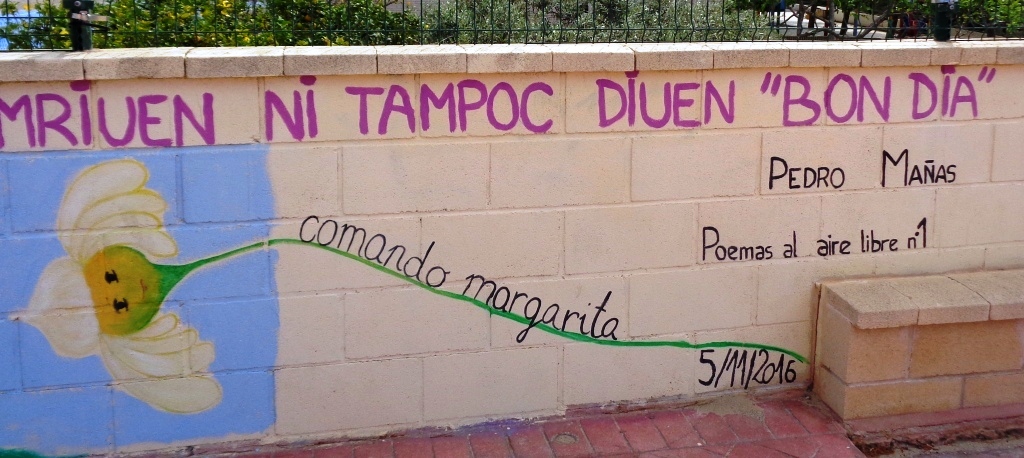 MRIUEN NI TAMPOC DIUEN "BON DIA"
PEDRO MAÑAS
Poemas al aire libre nº1
comando margarita
5/11/2016